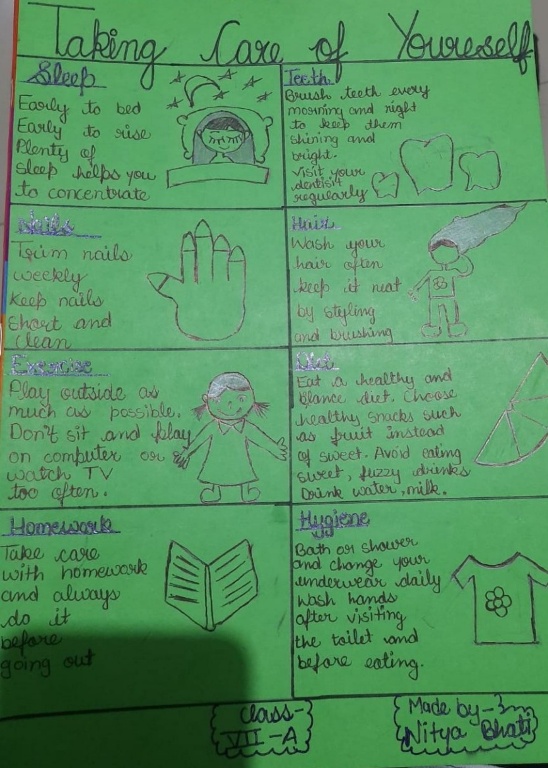 Taking Care of Youreself
Sleep
Early to bed
Early to rise
Plenty of
Sleep helps you
to concentrate
Teeth
Brush teeth every
morning and night
to keep them
shining and
bright.
Visit your
dentisit
regularly
Nails
Trim nails
weekly
Keep nails
short and
clean
Hair
Wash your
hair often
keep it neat
by styling
and brushing
Exercise
Play outside as
much as possible.
Don't sit and play
on computer or
watch TV
too often.
Diet
Eat a healthy and
blance diet. Choose
healthy snacks such
as fruit instead
of sweet. Avoid eating
sweet, fuzzy drinks
Drink water, milk.
Homework
Take care
with homework
and always
do it
before
going out
Hygiene
Bath or shower
and change your
underwear daily
Wash hands
after visiting
the toilet and
before eating.
Class-
VII-A
Made by-
Nitya Bhati